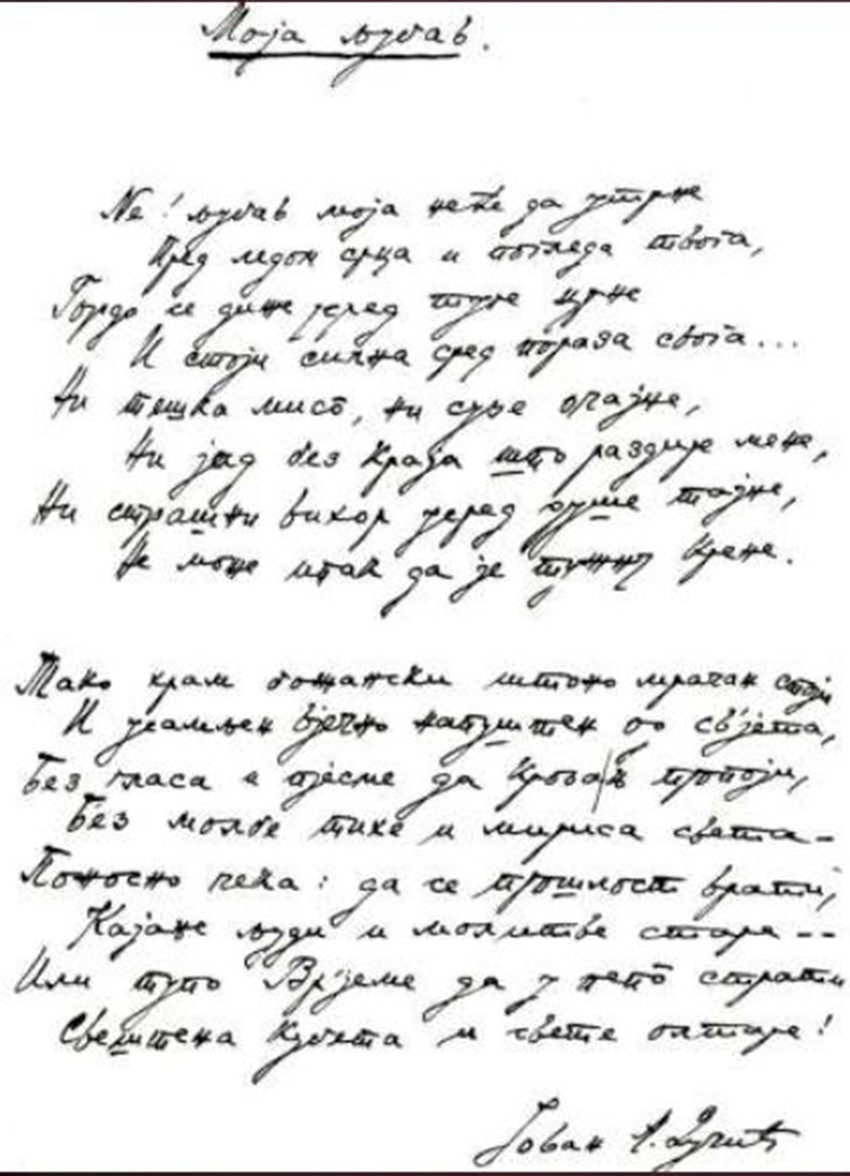 Моја љубав.
Не! љубав моја неће да утрне
Пред ледом срца и погледа твога,
Гордо се диже усред туге црне
И стоји силна сред пораза свога...
Ни тешка мисо, ни сује очајне,
Ни јад без краја што раздире мене,
Ни страшни вихор усред душе тајне,
Не може ипак да је тужну крене.
Тако храм божански штоно мрачан стоји
И усамљен вјечно напуштен од свијета,
Без гласа и пјесме да кровъ пропоји,
Без молбе тихе и мириса света -
Поносно чека: да се прошлост врати,
Кајање људи и молитве старе --
Или тупо Вријеме да у пепо страти
Свештена кубета и свете олтаре!
Јован Дучић